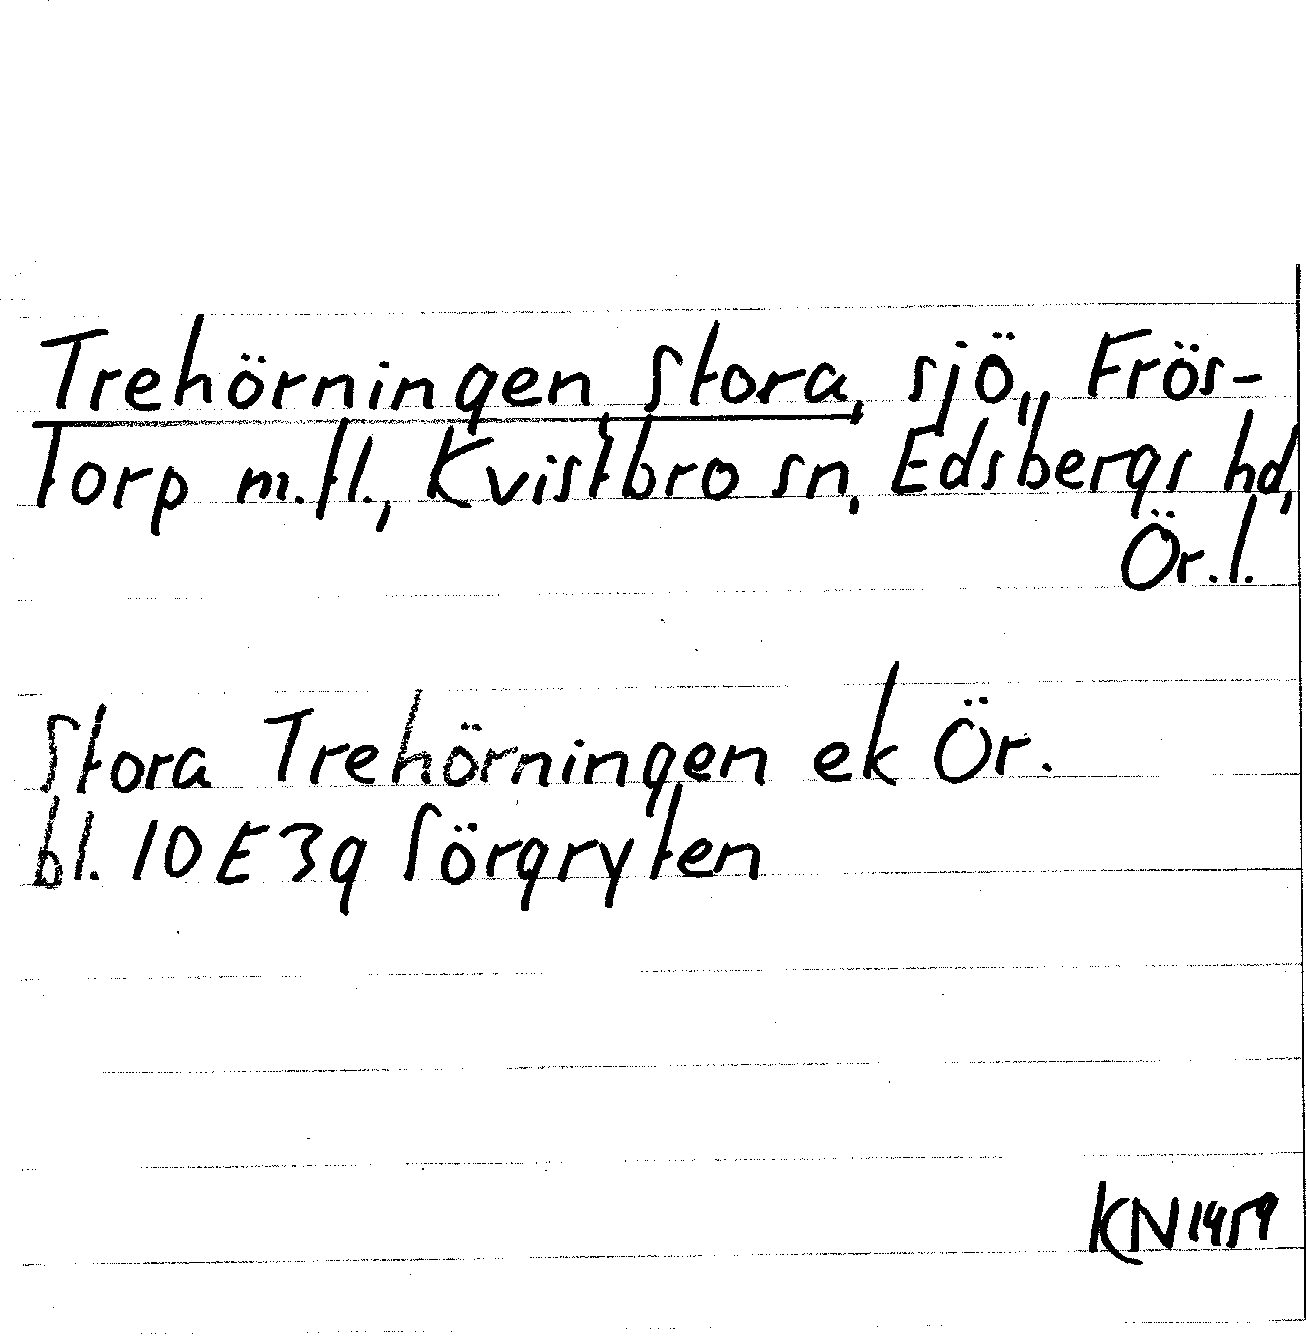 Trehörningen Stora, sjö, Frös-
torp m.fl., Kvistbro sn, Edsbergs hd,
Ör. l.
Stora Trehörningen ek Ör.
bl. 10E3g Sörgryten
KN1459